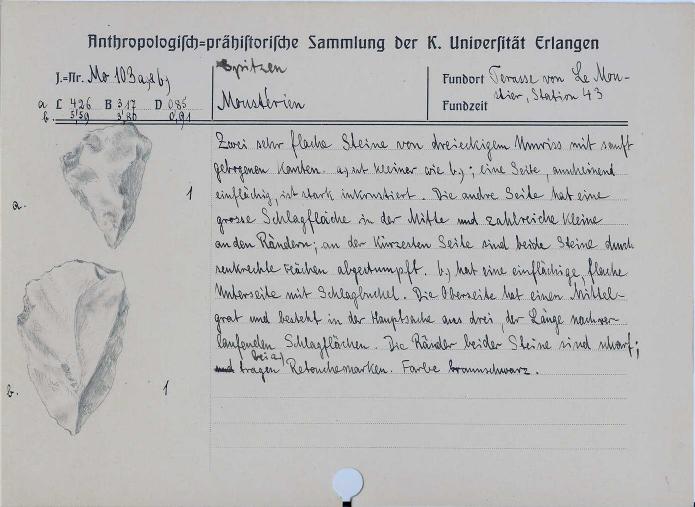 Anthropologisch=prähistorische Sammlung der K. Universität Erlangen
J.=Nr. Mo 103 a,b,
Spitzen
Moustérien
Fundort Terasse von Le Mou-
stier, Station 43
Fundzeit
a L 4,26 B 3,17 D 0,85
b. 5,59 3,86 0,91
Zwei sehr flache Steine von dreieckigem Umriss mit sanft
gebogenen Kanten. a, ist kleiner wie b,; eine Seite, anscheinend
einflächig, ist stark inkrustiert. Die andre Seite hat eine
grosse Schlagfläche in der Mitte und zahlreiche kleine
an den Rändern; an der kürzesten Seite sind beide Steine durch
senkrechte Flächen abgestumpft. b, hat eine einflächige, flache
Unterseite mit Schlagbuckel. Die Oberseite hat einen Mittel-
grat und besteht in der Hauptsache aus drei, der Länge nach ver-
laufenden Schlagflächen. Die Ränder beider Steine sind scharf;
bei a,
und tragen Retouchemarken. Farbe braunschwarz.
a. 1
b. 1